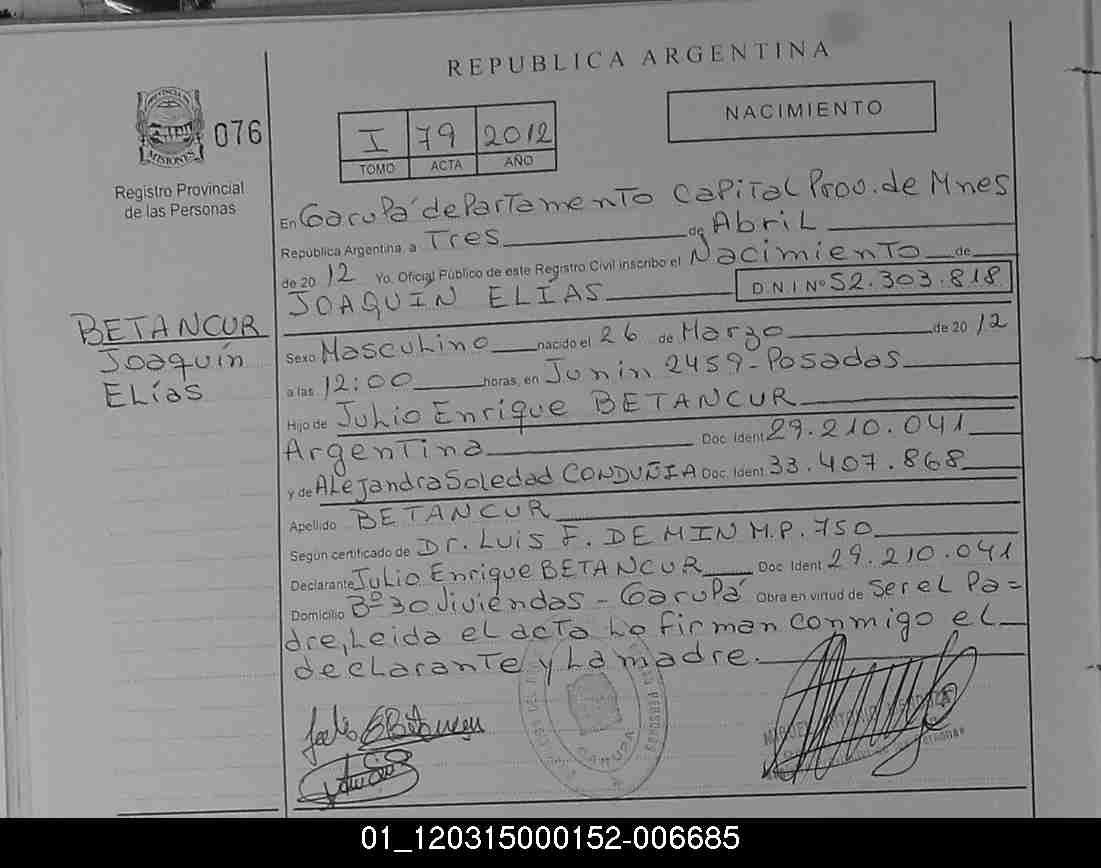 REPUBLICA ARGENTINA
PROVINCIA DE
MISIONES
076
Registro Provincial
de las Personas
I 79 2012
TOMO ACTA AÑO
NACIMIENTO
En Garupá departamento Capital Prov. de Mnes
República Argentina, a Tres de Abril
de 2012 Yo, Oficial Público de este Registro Civil inscribo el Nacimiento de
JOAQUÍN ELÍAS DNI Nº 52.303.818
BETANCUR
Joaquín
Elías
Sexo Masculino nacido el 26 de Marzo de 2012
a las 12:00 horas, en Junin 2459-Posadas
Hijo de Julio Enrique BETANCUR
Argentina Doc. Ident 29.210.041
y de Alejandra Soledad CONDUÑIA Doc. Ident. 33.407.868
Apellido BETANCUR
Según certificado de Dr. Luis F. DE MIN M.P. 750
Declarante Julio Enrique BETANCUR Doc Ident 29.210.041
Domicilio Bº 30 Viviendas - Garupá Obra en virtud de ser el Pa=
dre, Leida el acta Lo firman conmigo el
declarante y La madre.
GARUPA
01_120315000152-006685